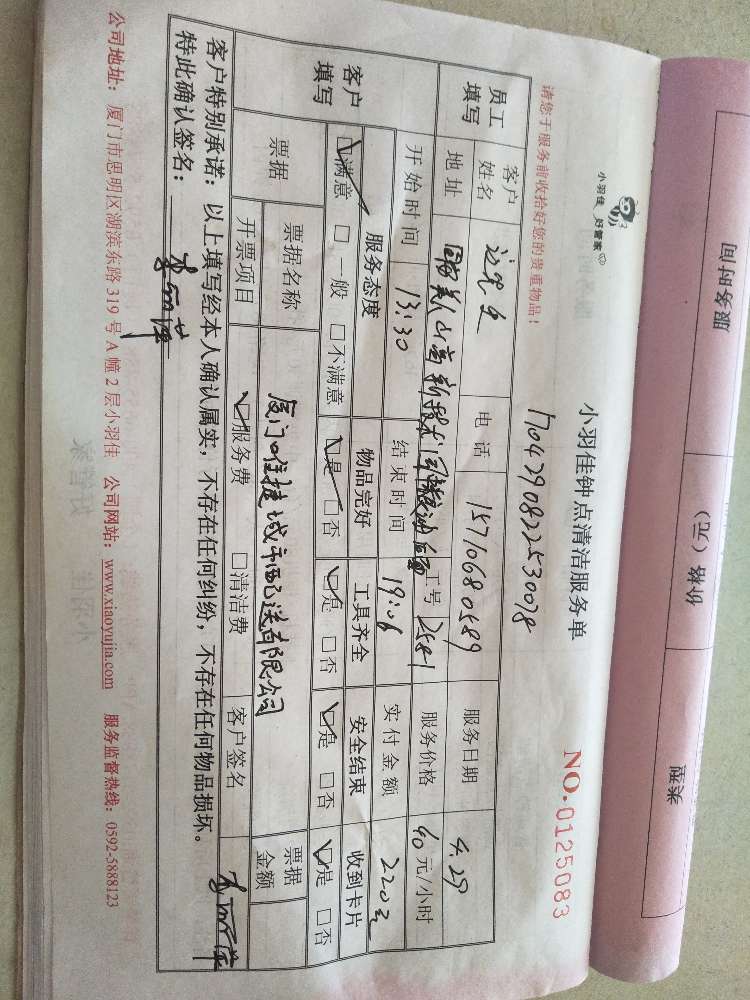 服务时间
价格（元）
小羽佳 好管家
小羽佳钟点清洁服务单
NO.0125083
请您于服务前收拾好您的贵重物品！
1704290822530078
员工填写
客户姓名
电话 15710680589
服务日期 4.29
地址
工号 2581
服务价格 40元/小时
开始时间 13:30
结束时间
实付金额
客户填写
服务态度
物品完好
工具齐全
安全结束
收到卡片
满意 □一般 □不满意
是 □否
是 □否
是 □否
是 □否
票据
票据名称
票据金额
开票项目
服务费 □清洁费
客户签名
客户特别承诺：以上填写经本人确认属实，不存在任何纠纷，不存在任何物品损坏。
特此确认签名：
公司地址：厦门市思明区湖滨东路319号A幢2层小羽佳 公司网站：www.xiaoyujia.com 服务监督热线：0592-5888123